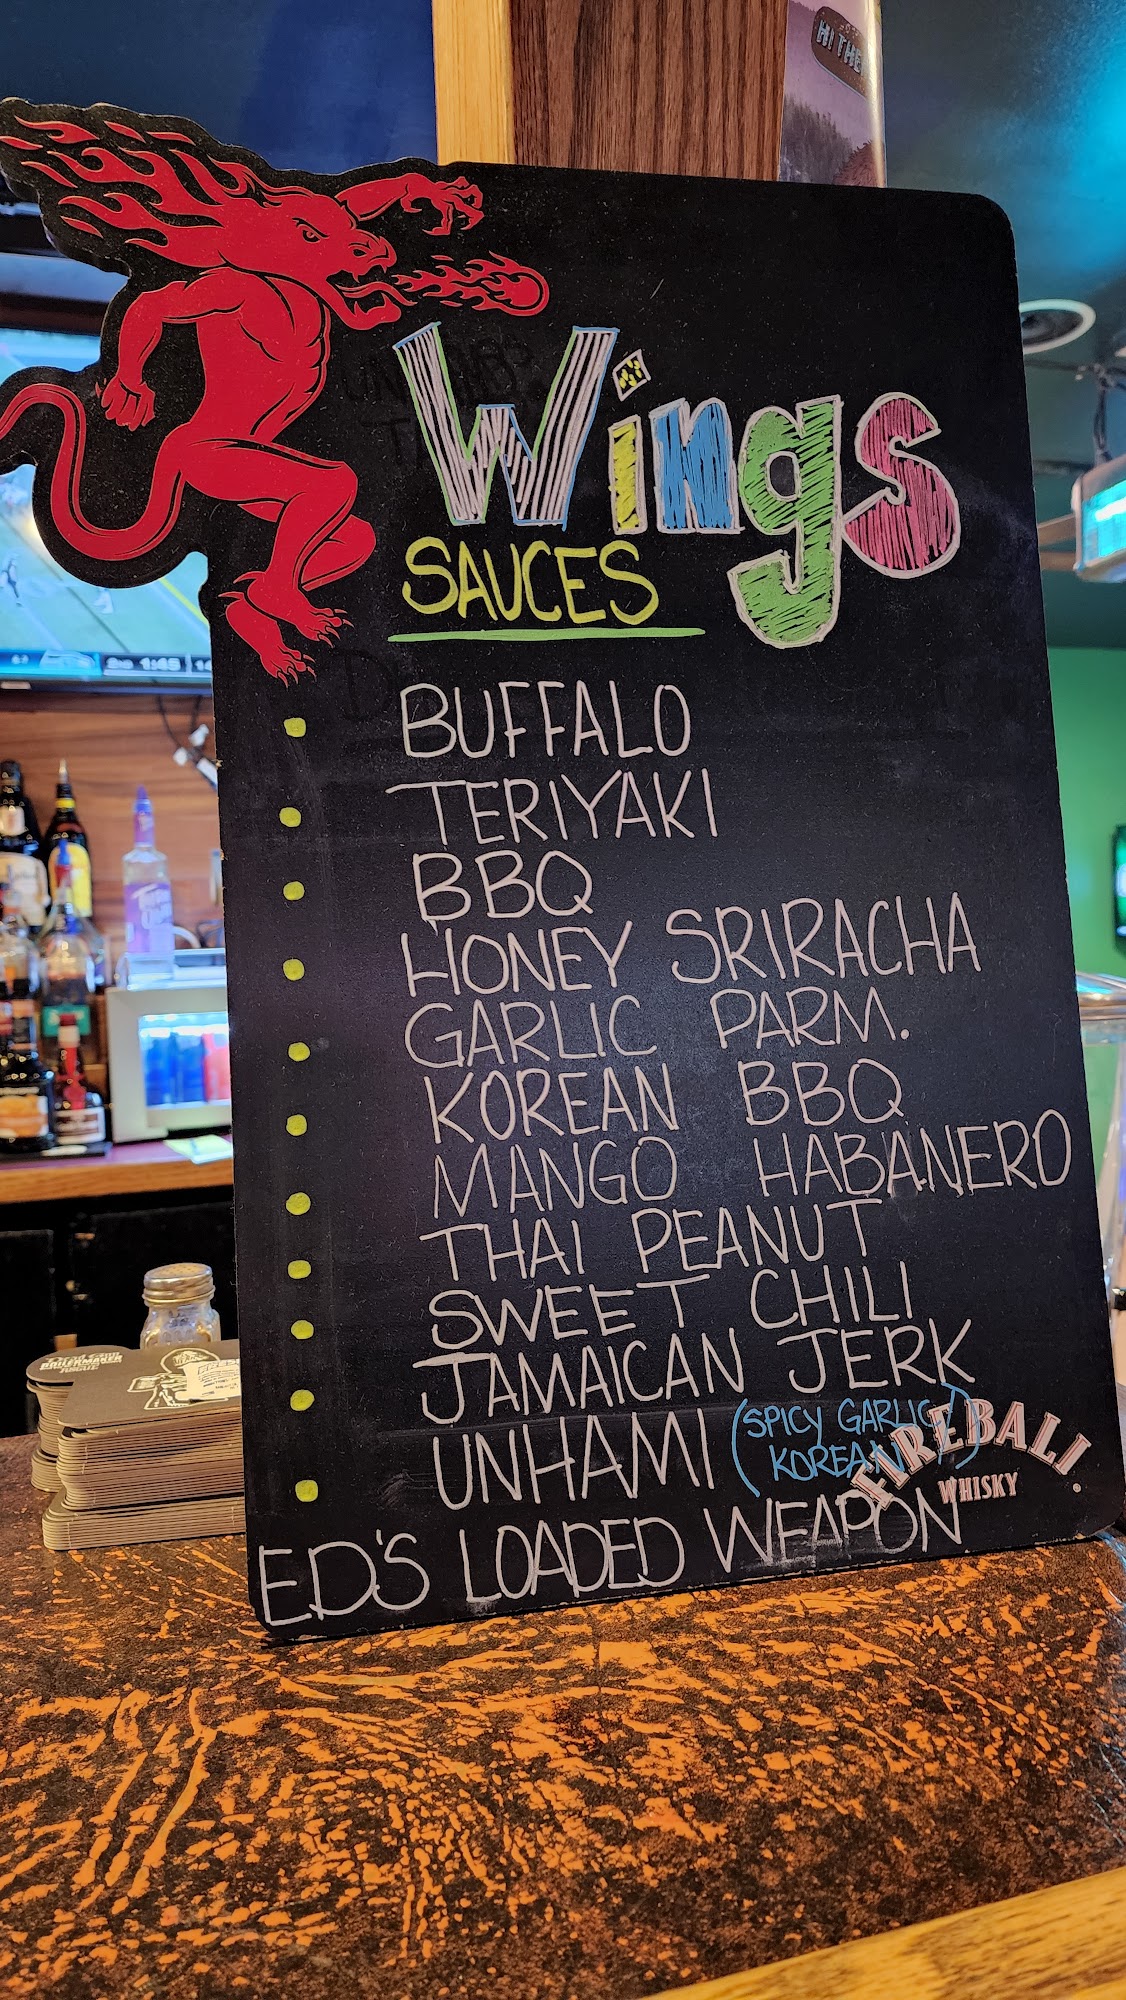 HI THE
Wings
SAUCES
BUFFALO
TERIYAKI
BBQ
HONEY SRIRACHA
GARLIC PARM.
KOREAN BBQ
MANGO HABANERO
THAI PEANUT
SWEET CHILI
JAMAICAN JERK
UNHAMI (SPICY GARLIC
KOREAN)
FIREBALL
WHISKY
ED'S LOADED WEAPON
2ND 1:45 14
BOILERMAKER